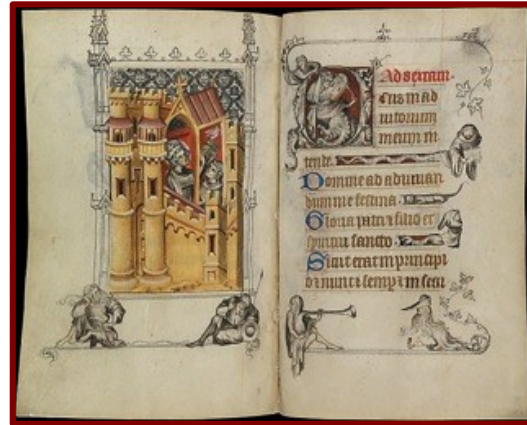 Ad sextam.
Deus in ad
iutorium
meum in
tende.
Domine ad adiuuan
dum me festina.
Gloria patri et filio et
spiritui sancto.
Sicut erat in principi
o et nunc et semp et in secu